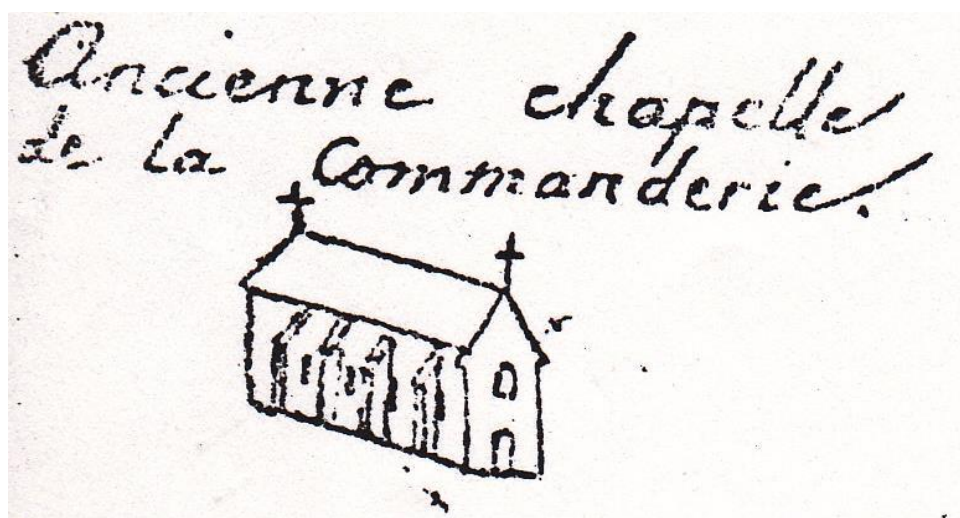 Ancienne chapelle
de la Commanderie.